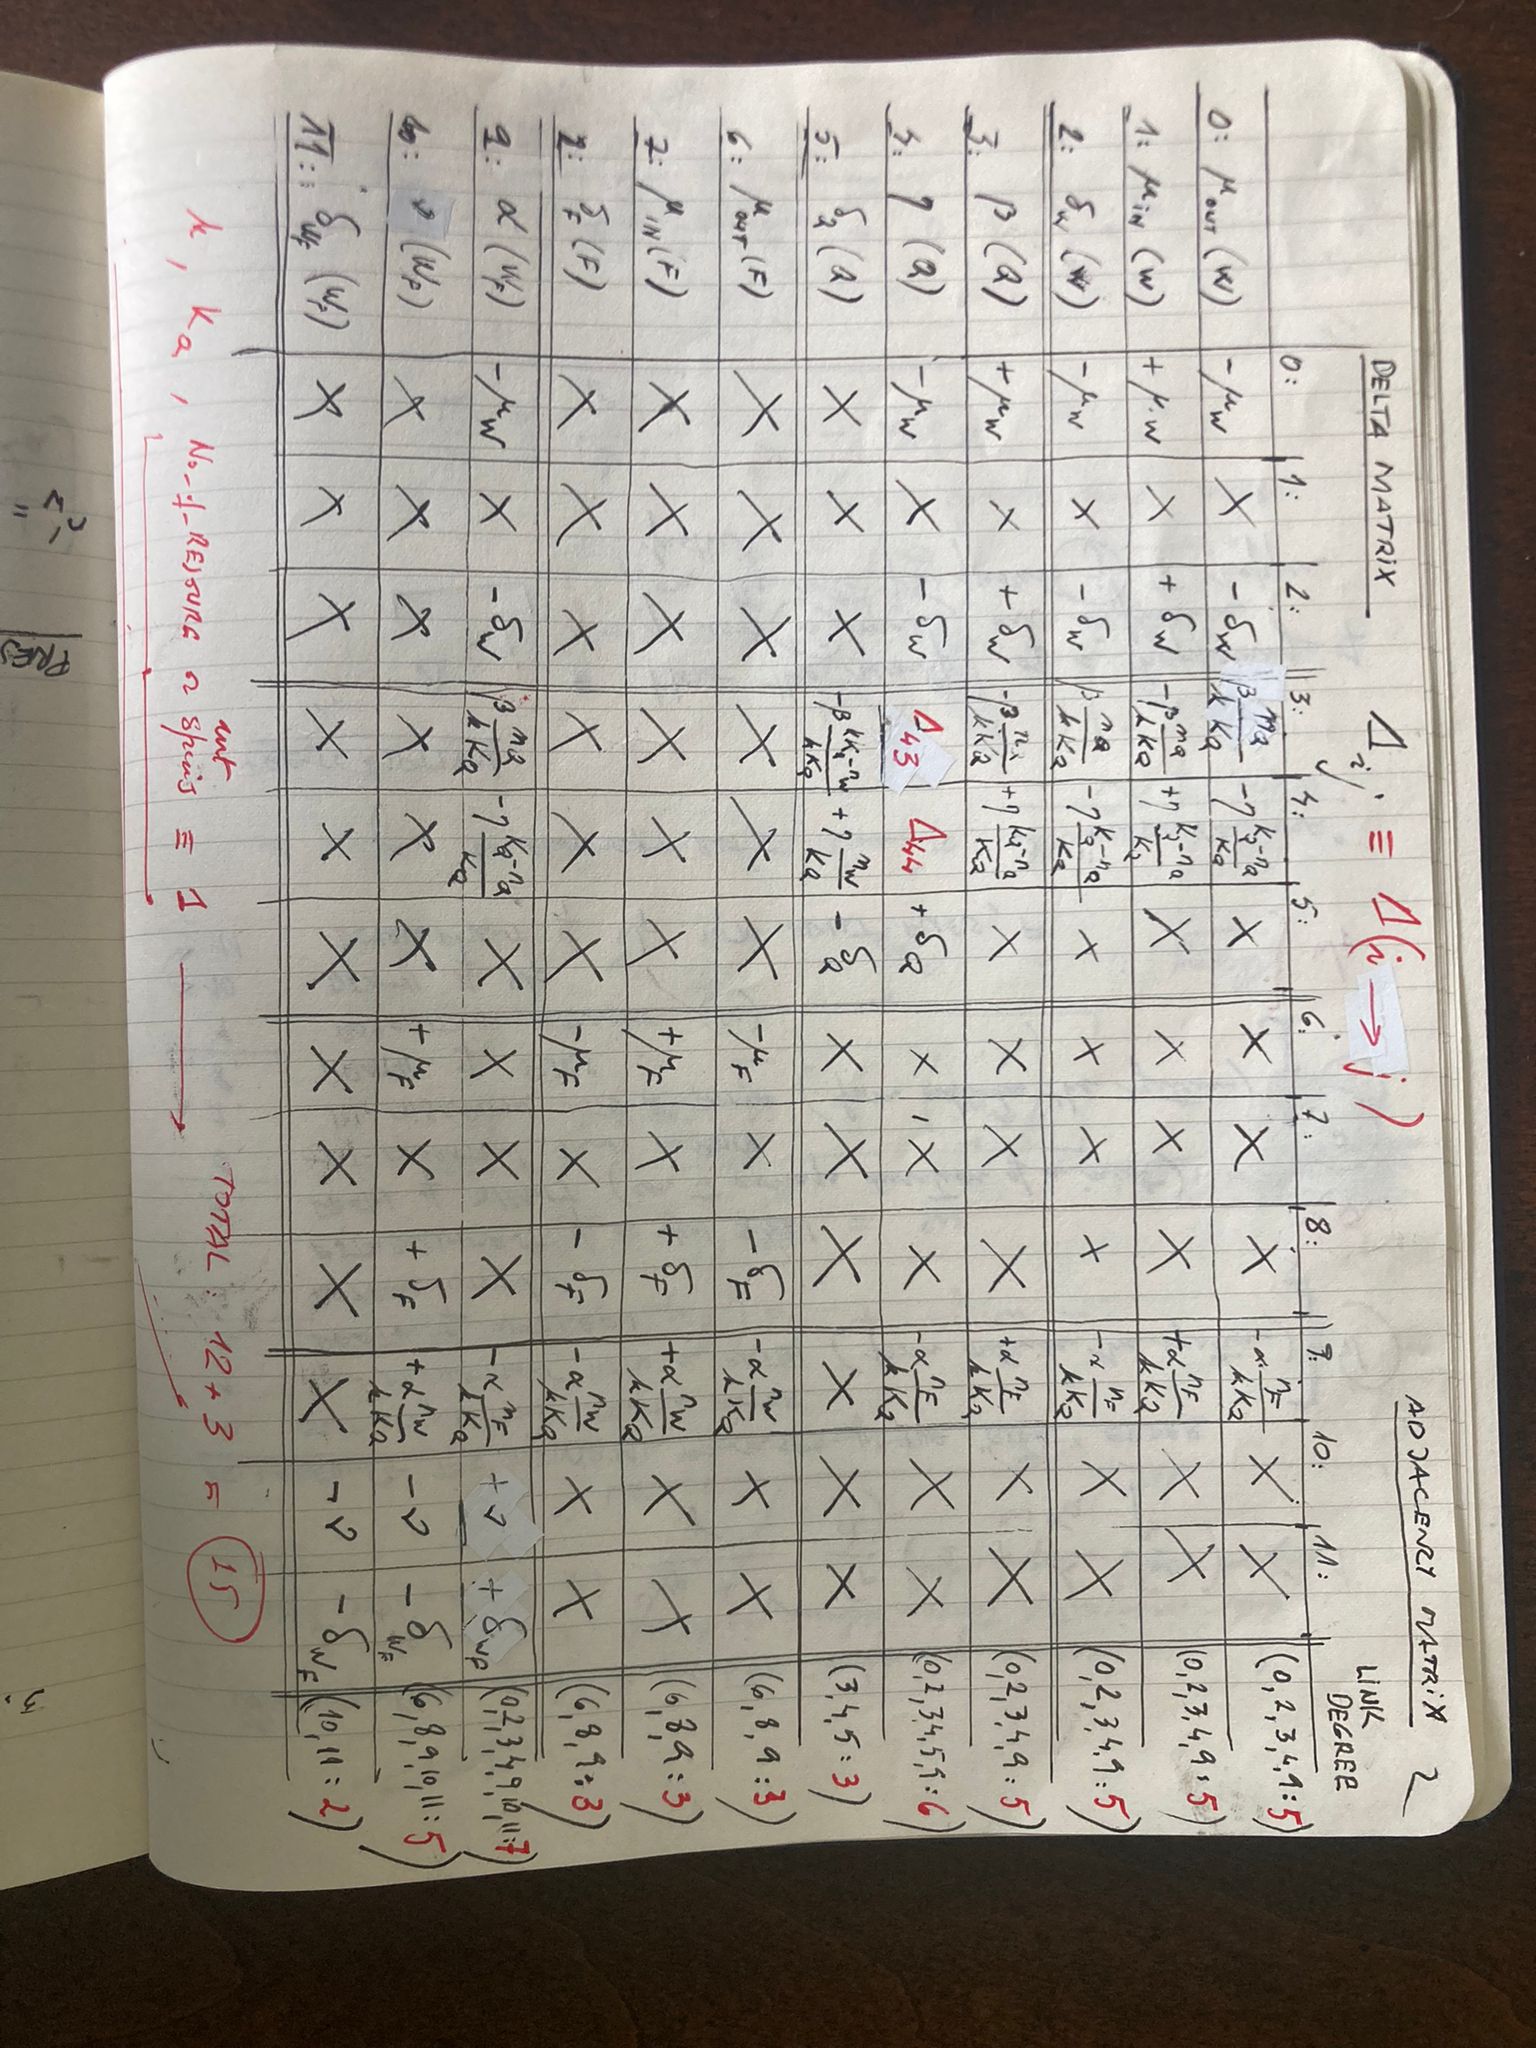 DELTA MATRIX Δij ≡ Δ(i → j) ADJACENCY MATRIX 2
0: 1: 2: 3: 4: 5: 6: 7: 8: 9: 10: 11: LINK DEGREE
0: μOUT (W) -μW X -δW β nQ/kKQ -η (KQ-nQ)/KQ X X X X -α nF/kKQ X X (0,2,3,4,9:5)
1: μIN (W) +μW X +δW -β nQ/kKQ +η (KQ-nQ)/KQ X X X X +α nF/kKQ X X (0,2,3,4,9:5)
2: δW (W) -μW X -δW β nQ/kKQ -η (KQ-nQ)/KQ X X X X -α nF/kKQ X X (0,2,3,4,9:5)
3: β (Q) +μW X +δW -β /kKQ +η (KQ-nQ)/KQ X X X X +α nF/kKQ X X (0,2,3,4,9:5)
4: η (Q) -μW X -δW Δ43 Δ44 +δQ X X X -α nF/kKQ X X (0,2,3,4,5,9:6)
5: δQ (Q) X X X -β (kKQ-nW)/kKQ +η nW/KQ -δQ X X X X X X (3,4,5:3)
6: μOUT (F) X X X X X X -μF X -δF -α nW/kKQ X X (6,8,9:3)
7: μIN (F) X X X X X X +μF X +δF +α nW/kKQ X X (6,8,9:3)
8: δF (F) X X X X X X -μF X -δF -α nW/kKQ X X (6,8,9:3)
9: α (WF) -μW X -δW β nQ/kKQ -η (KQ-nQ)/KQ X X X X -α nF/kKQ +ν +δWF (0,2,3,4,9,10,11:7)
10: ν (WF) X X X X X X +μF X +δF +α nW/kKQ -ν -δWF (6,8,9,10,11:5)
11: δWF (WF) X X X X X X X X X X -ν -δWF (10,11:2)
k, KQ, No-of-RESOURCE ant species ≡ 1 → TOTAL: 12+3 = 15
PRES